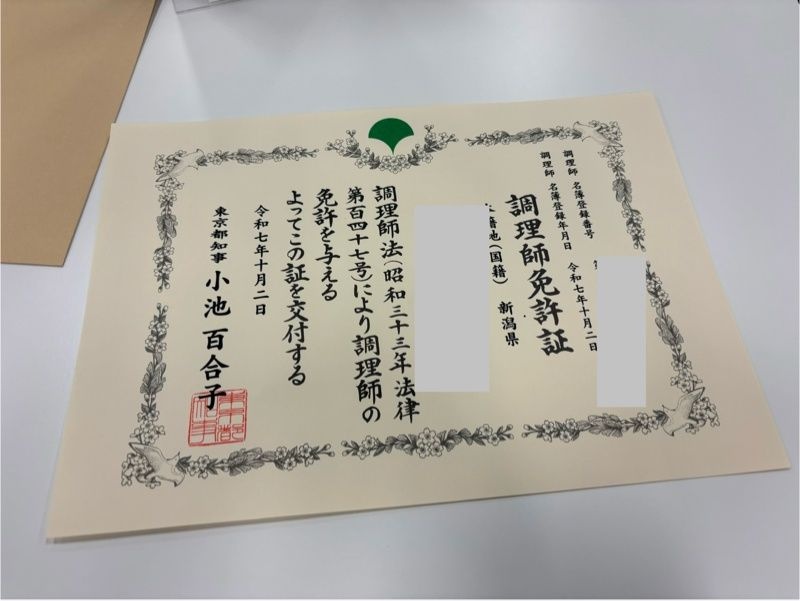 調理師免許証
調理師名簿登録番号
調理師名簿登録年月日 令和七年十月二日
本籍地(国籍) 新潟県
調理師法(昭和三十三年法律
第百四十七号)により調理師の
免許を与える
よってこの証を交付する
令和七年十月二日
東京都知事 小池百合子